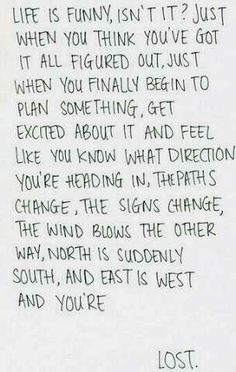 LIFE IS FUNNY, ISN'T IT? JUST
WHEN YOU THINK YOU'VE GOT
IT ALL FIGURED OUT, JUST
WHEN YOU FINALLY BEGIN TO
PLAN SOMETHING, GET
EXCITED ABOUT IT AND FEEL
LIKE YOU KNOW WHAT DIRECTION
YOU'RE HEADING IN, THE PATHS
CHANGE, THE SIGNS CHANGE,
THE WIND BLOWS THE OTHER
WAY, NORTH IS SUDDENLY
SOUTH, AND EAST IS WEST
AND YOU'RE
LOST.